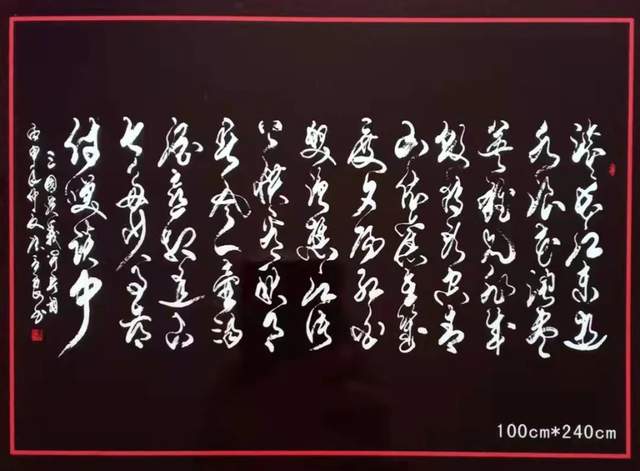 滚滚长江东逝
水浪花淘尽
英雄是非成
败转头空青
山依旧在几
度夕阳红白
发渔樵江渚
上惯看秋月
春风一壶浊
酒喜相逢古
今多少事都
付笑谈中
三国演义开卷词
丙申年仲夏
100cm*240cm